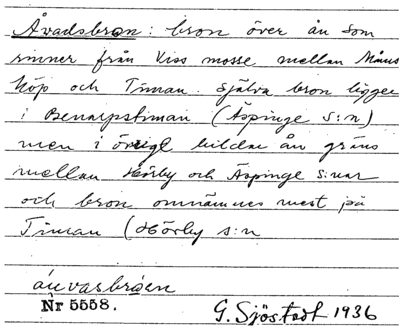 Åvadsbron: bron över ån som
rinner från Kiss mosse mellan Måns
köp och Timan. Själva bron ligger
i Benarpstiman (Äspinge s:n)
men i övrigt bildar ån gräns
mellan Hörby och Äspinge s:nar
och bron omnämnes mest på
Timan (Hörby s:n
åuvasbroen
Nr 5558.
G. Sjöstedt 1936